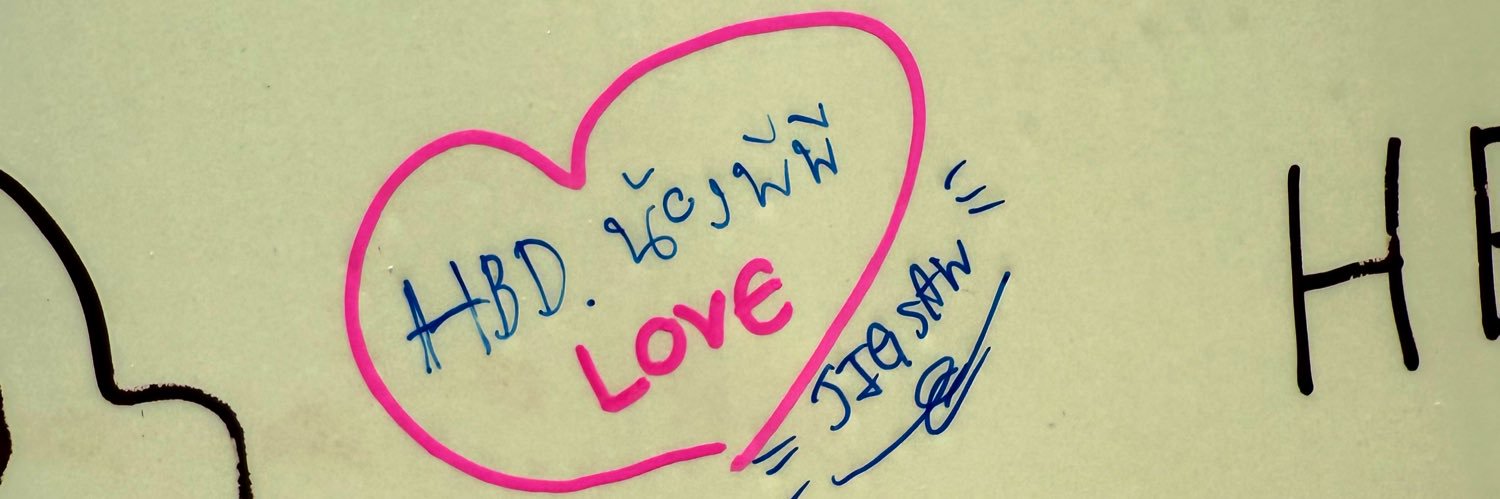 HBD. น้องพั้พี
LOVE
JIGSAW
H